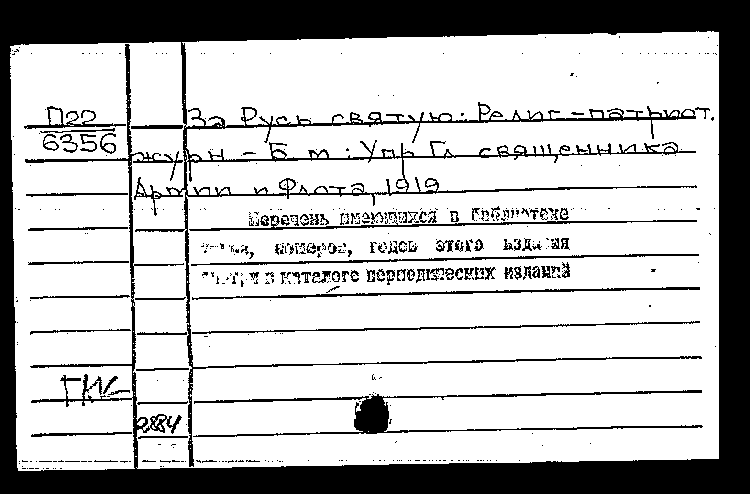 П22
6356
За Русь святую: Религ-патриот.
журн - Б м: Упр Гл священника
Армии и Флота, 1919
Перечень имеющихся в библиотеке
номеров, годов этого издания
в каталоге периодических изданий
2884